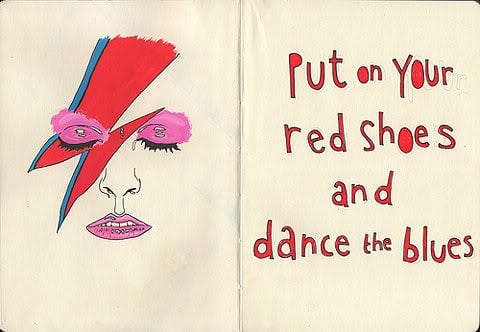 Put on your
red shoes
and
dance the blues